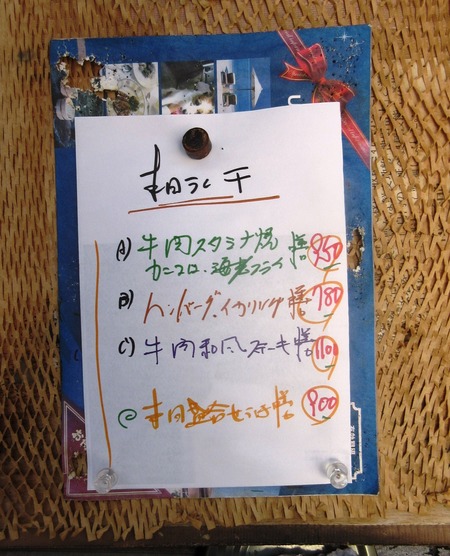 本日らんチ
A) 牛肉スタミナ焼
カニコロ、海老フライ 膳 850
B) ハンバーグ、イカリング膳 780
C) 牛肉和風ステーキ膳 1100
本日盛合せ 膳 900